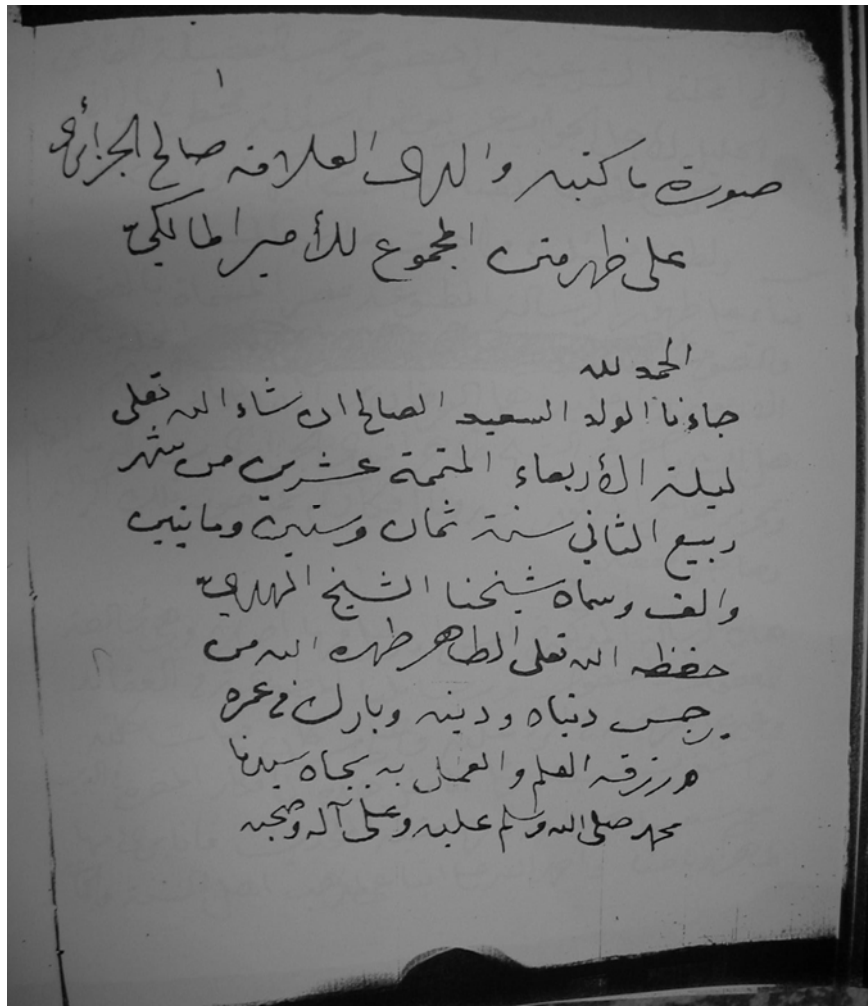 صورة ما كتبه والدي العلامة صالح الجزائري
على ظهر متن المجموع للأمير المالكيّ
الحمد لله
جاءنا الولد السعيد الصالح ان شاء الله تعلى
ليلة الأربعاء المتممة عشرين من شهر
ربيع الثاني سنة ثمان وستين ومايتين
والف وسماه شيخنا الشيخ المهديّ
حفظه الله تعلى الطاهر طهره الله من
رجس دنياه ودينه وبارك في عمره
ورزقه العلم والعمل به بجاه سيدنا
محمد صلى الله وسلم عليه وعلى آله وصحبه